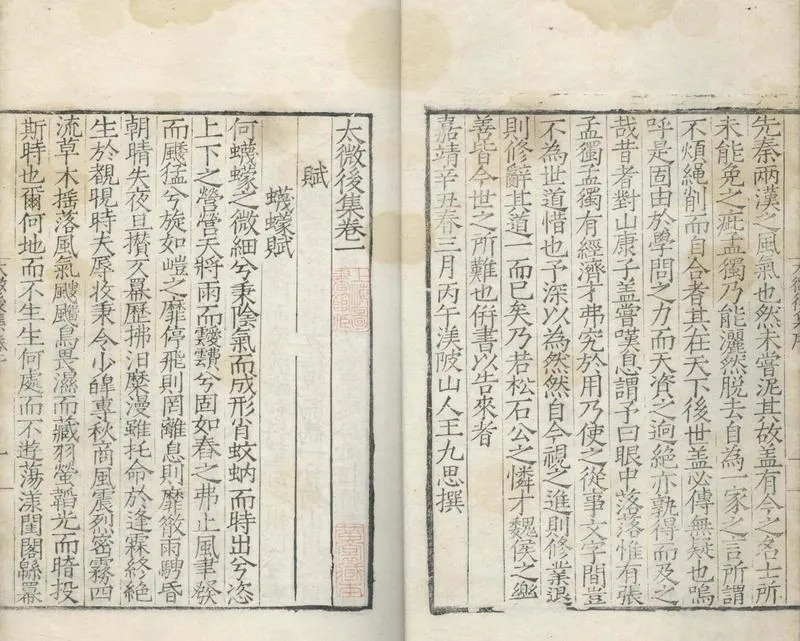 先秦兩漢之風氣也然未嘗泥其故盖有今之名士所
未能免之疵孟獨乃能灑然脱去自為一家之言所謂
不煩繩削而自合者其在天下後世盖必傳無疑也嗚
呼是固由於學問之力而天資之逈絶亦孰得而及之
哉昔者對山康子盖嘗嘆息謂予曰眼中落落惟有張
孟獨孟獨有經濟才弗究於用乃使之從事文字間豈
不為世道惜也予深以為然然自今視之進則修業退
則修辭其道一而已矣乃若松石公之憐才魏侯之樂
善皆今世之所難也併書以告來者
嘉靖辛丑春三月丙午渼陂山人王九思撰
太微後集卷一
賦
蠛蠓賦
何蠛蠓之微細兮秉陰氣而成形肖蚊蚋而時出兮恣
上下之營營天將雨而靉靆兮固如舂之弗止風晝發
而飈猛兮旋如磑之靡停飛則罔離息則靡徵雨驟昏
朝晴失夜旦攢
歷拂汨麼漫雖托命於逢霖終絶
生於覩晛時夫辱收秉令少皥專秋商風震烈密霧四
流草木摇落風氣颼飀鳥畏濕而藏羽螢韜光而暗投
斯時也爾何地而不生生何處而不遊蕩漾閨閣緜羃
上海圖
書館藏
太微後集序